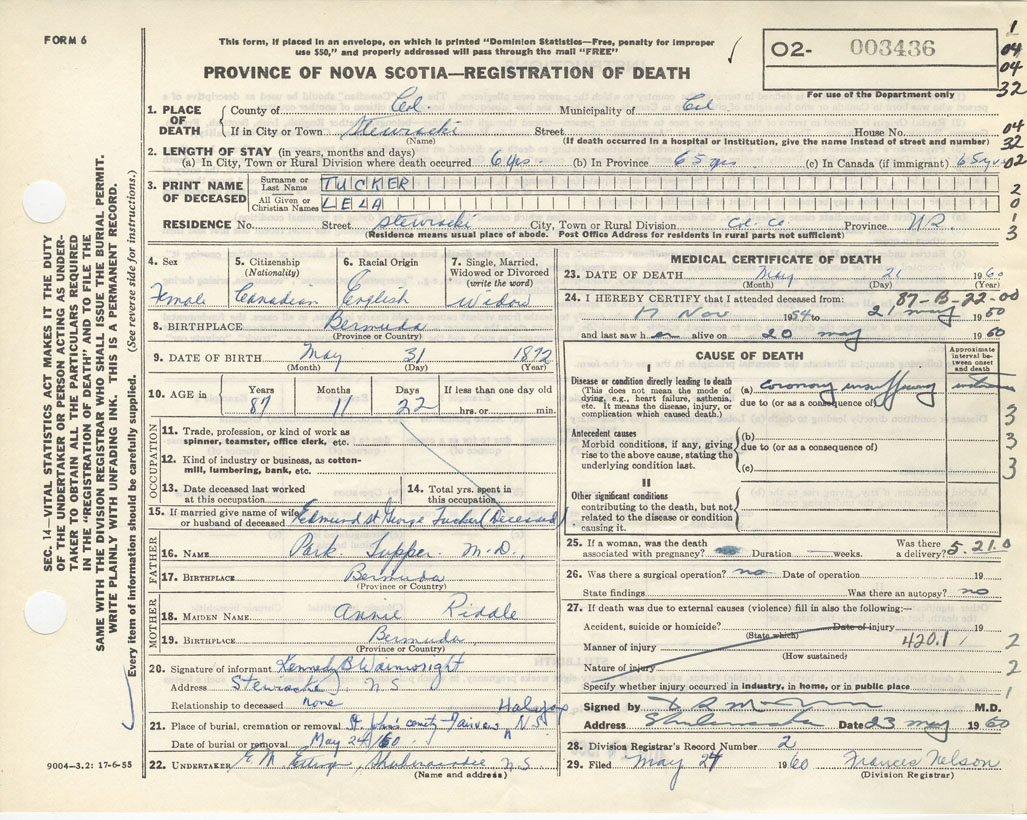 FORM 6
This form, if placed in an envelope, on which is printed "Dominion Statistics—Free, penalty for improper
use $50," and properly addressed will pass through the mail "FREE"
PROVINCE OF NOVA SCOTIA—REGISTRATION OF DEATH
O2- 003436
For use of the Department only
1
04
04
32
1. PLACE OF DEATH
County of Col. Municipality of Col
If in City or Town Stewiacki Street House No.
(Name) (If death occurred in a hospital or institution, give the name instead of street and number)
04
32
2. LENGTH OF STAY (in years, months and days)
(a) In City, Town or Rural Division where death occurred 6 yrs. (b) In Province 65 yrs (c) In Canada (if immigrant) 65 yrs
02
3. PRINT NAME OF DECEASED
Surname or Last Name TUCKER
All Given or Christian Names LELA
2
0
RESIDENCE No. Street Stewiacki City, Town or Rural Division Col. Co. Province N.S.
(Residence means usual place of abode. Post Office Address for residents in rural parts not sufficient)
1
3
4. Sex Female
5. Citizenship (Nationality) Canadian
6. Racial Origin English
7. Single, Married, Widowed or Divorced (write the word) Widow
8. BIRTHPLACE Bermuda
(Province or Country)
9. DATE OF BIRTH May 31 1872
(Month) (Day) (Year)
10. AGE in Years 87 Months 11 Days 22 If less than one day old hrs. or min.
OCCUPATION
11. Trade, profession, or kind of work as spinner, teamster, office clerk, etc.
12. Kind of industry or business, as cotton-mill, lumbering, bank, etc.
13. Date deceased last worked at this occupation
14. Total yrs. spent in this occupation
15. If married give name of wife or husband of deceased Edmund St George Tucker (Deceased)
FATHER
16. NAME Park. Tupper. M.D.,
17. BIRTHPLACE Bermuda
(Province or Country)
MOTHER
18. MAIDEN NAME Annie Riddle
19. BIRTHPLACE Bermuda
(Province or Country)
20. Signature of informant Kennedy B Wainwright
Address Stewiacke, N.S
Relationship to deceased none
21. Place of burial, cremation or removal St. John's cemty Fairview Halifax N.S
Date of burial or removal May 24/60
22. UNDERTAKER E. M. Shubenacadie N.S.
(Name and address)
MEDICAL CERTIFICATE OF DEATH
23. DATE OF DEATH May 21 1960
(Month) (Day)
24. I HEREBY CERTIFY that I attended deceased from: 87-B-22-00
17 Nov 1954 to 21 May 1960
and last saw her alive on 20 May 1960
CAUSE OF DEATH
Approximate interval between onset and death
I
Disease or condition directly leading to death
(This does not mean the mode of dying, e.g., heart failure, asthenia, etc. It means the disease, injury, or complication which caused death.)
(a) Coronary insufficiency
due to (or as a consequence of)
Antecedent causes
Morbid conditions, if any, giving rise to the above cause, stating the underlying condition last.
(b)
due to (or as a consequence of)
(c)
3
3
3
3
II
Other significant conditions
contributing to the death, but not related to the disease or condition causing it.
25. If a woman, was the death associated with pregnancy? no Duration weeks. Was there a delivery? 5.21.0
26. Was there a surgical operation? no Date of operation 19
State findings Was there an autopsy? no
27. If death was due to external causes (violence) fill in also the following:—
Accident, suicide or homicide? Date of injury 19
(State which)
Manner of injury 420.1
(How sustained)
Nature of injury
Specify whether injury occurred in industry, in home, or in public place
2
2
1
Signed by M.D.
Address Shubenacadie Date 23 May 1960
28. Division Registrar's Record Number 2
29. Filed May 24 1960 Frances Nelson
(Division Registrar)
9004-3.2: 17-6-55
SEC. 14—VITAL STATISTICS ACT MAKES IT THE DUTY
OF THE UNDERTAKER OR PERSON ACTING AS UNDER-
TAKER TO OBTAIN ALL THE PARTICULARS REQUIRED
IN THE "REGISTRATION OF DEATH" AND TO FILE THE
SAME WITH THE DIVISION REGISTRAR WHO SHALL ISSUE THE BURIAL PERMIT.
WRITE PLAINLY WITH UNFADING INK. THIS IS A PERMANENT RECORD.
Every item of information should be carefully supplied. (See reverse side for instructions.)